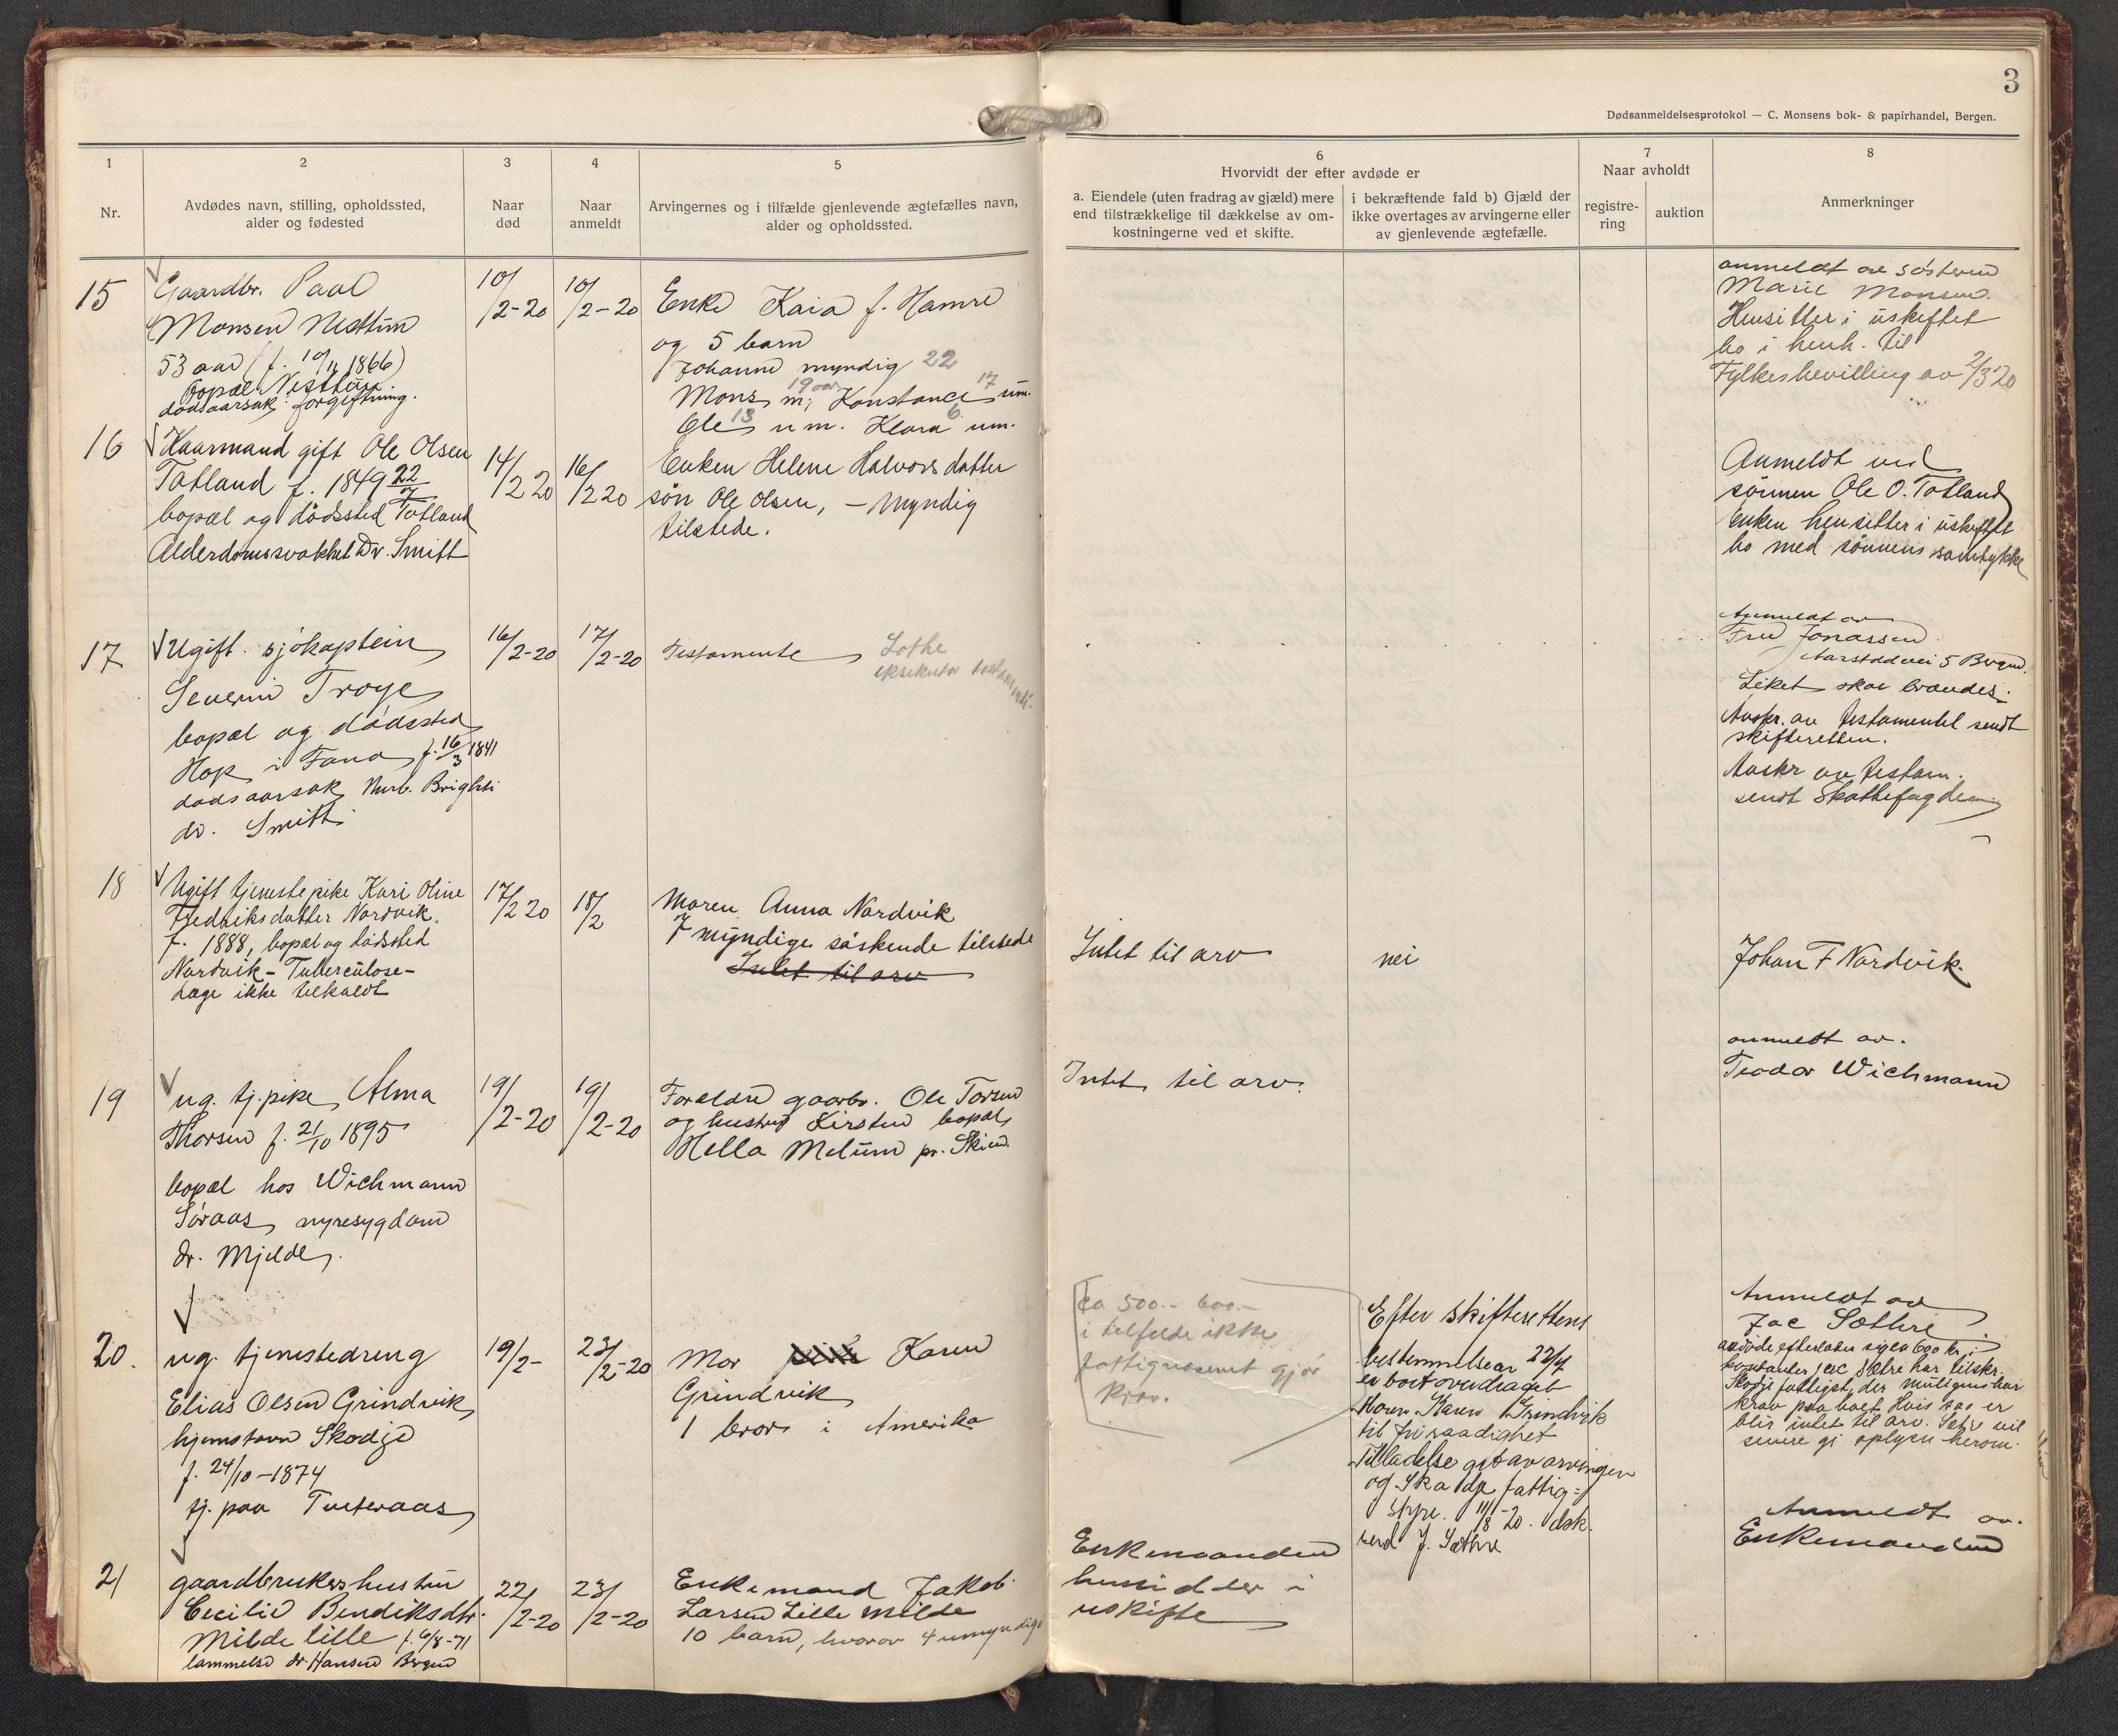 3
Dødsanmeldelsesprotokol — C. Monsens bok- & papirhandel, Bergen.
1
Nr.
2
Avdødes navn, stilling, opholdssted,
alder og fødested
3
Naar
død
4
Naar
anmeldt
5
Arvingernes og i tilfælde gjenlevende ægtefælles navn,
alder og opholdssted.
6
Hvorvidt der efter avdøde er
a. Eiendele (uten fradrag av gjæld) mere
end tilstrækkelige til dækkelse av om-
kostningerne ved et skifte.
i bekræftende fald b) Gjæld der
ikke overtages av arvingerne eller
av gjenlevende ægtefælle.
7
Naar avholdt
registre-
ring
auktion
8
Anmerkninger
15
Gaardbr. Paal
Monsen Nesttun
53 aar (f. 10/11 1866)
bopæl Nesttun.
dødsaarsak: forgiftning.
10/2-20
10/2-20
Enke Kaia f. Hamre
og 5 barn
Johanne myndig 22
Mons 19 aar m; Konstance 17 um.
Ole 13 um. Klara 6 um.
anmeldt av søsteren
Marie Monsen.
Hensitter i uskiftet
bo i henh. til
Fylkesbevilling av 2/3 20
16
Kaarmand gift Ole Olsen
Totland f. 1849 22/7
bopæl og dødssted Totland
Alderdomssvakhet Dr. Smitt
14/2 20
16/2 20
Enken Helene Halvorsdatter
søn Ole Olsen, - Myndig
tilstede.
Anmeldt ved
sønnen Ole O. Totland
Enken hensitter i uskiftet
bo med sønnens samtykke
17
Ugift sjøkaptein
Severin Troye
bopæl og dødssted
Hop i Fana f. 16/3 1841
dødsaarsak Morb. Brighti
dr. Smitt
16/2-20
17/2-20
Testamente
Lothe
eksekutor testamenti.
Anmeldt av
Fru Jonassen
Aarstadvei 5 Bergen.
Liket skal brændes.
Avskr. av testamentet sendt
skifteretten.
Avskr av testam.
sendt Skattefogden
18
Ugift tjenestepike Kari Oline
Fredriksdatter Nordvik.
f. 1888, bopæl og dødssted
Nordvik - Tuberculose -
Læge ikke tilkaldt
17/2 20
18/2
Maren Anna Nordvik
7 myndige søskende tilstede
Intet til arv
Intet til arv
nei
Johan F Nordvik.
19
ug. tj.pike Alma
Thorsen f. 21/10 1895
bopæl hos Wichmann
Søraas, nyresygdom
dr. Mjelde.
19/2-20
19/2-20
Forældre gaarbr. Ole Torsen
og hustru Kirsten bopæl
Hella Melum pr. Skien.
Intet til arv.
anmeldt av.
Teodor Wichmann
20.
ug. tjenestedreng
Elias Olsen Grindvik
hjemstavn Skodje
f. 24/10-1874
tj. paa Tveteraas
19/2-
23/2-20
Mor Karen
Grindvik
1 bror i Amerika
ca 500.- 600.-
i tilfelde ikke
fattigvæsenet gjør
krav.
Efter skifterettens
bestemmelse av 22/4
er boet overdraget
Moren Karen Grindvik
til fri raadighet
Tilladelse git av arvingen
og Skodje fattig-
11/8-20.
ved J. Sæthre
Anmeldt av
Jac Sæthre
avdøde efterlater sig ca 600 kr. i
kontanter Jac Sætre har tilskr.
Skodje fattigst. der muligens har
krav paa boet. Hvis saa er
blir intet til arv. Sætre vil
senere gi oplysn. herom.
21
gaardbrukerhustru
Cecilie Bendiksdtr.
Milde lille f. 6/8-71
lammelse dr. Hansen Bergen
22/2-20
23/2-20
Enkemand Jakob
Larsen Lille Milde
10 barn, hvorav 4 umyndige
Enkemanden
hensidder i
uskifte
Anmeldt av.
Enkemanden